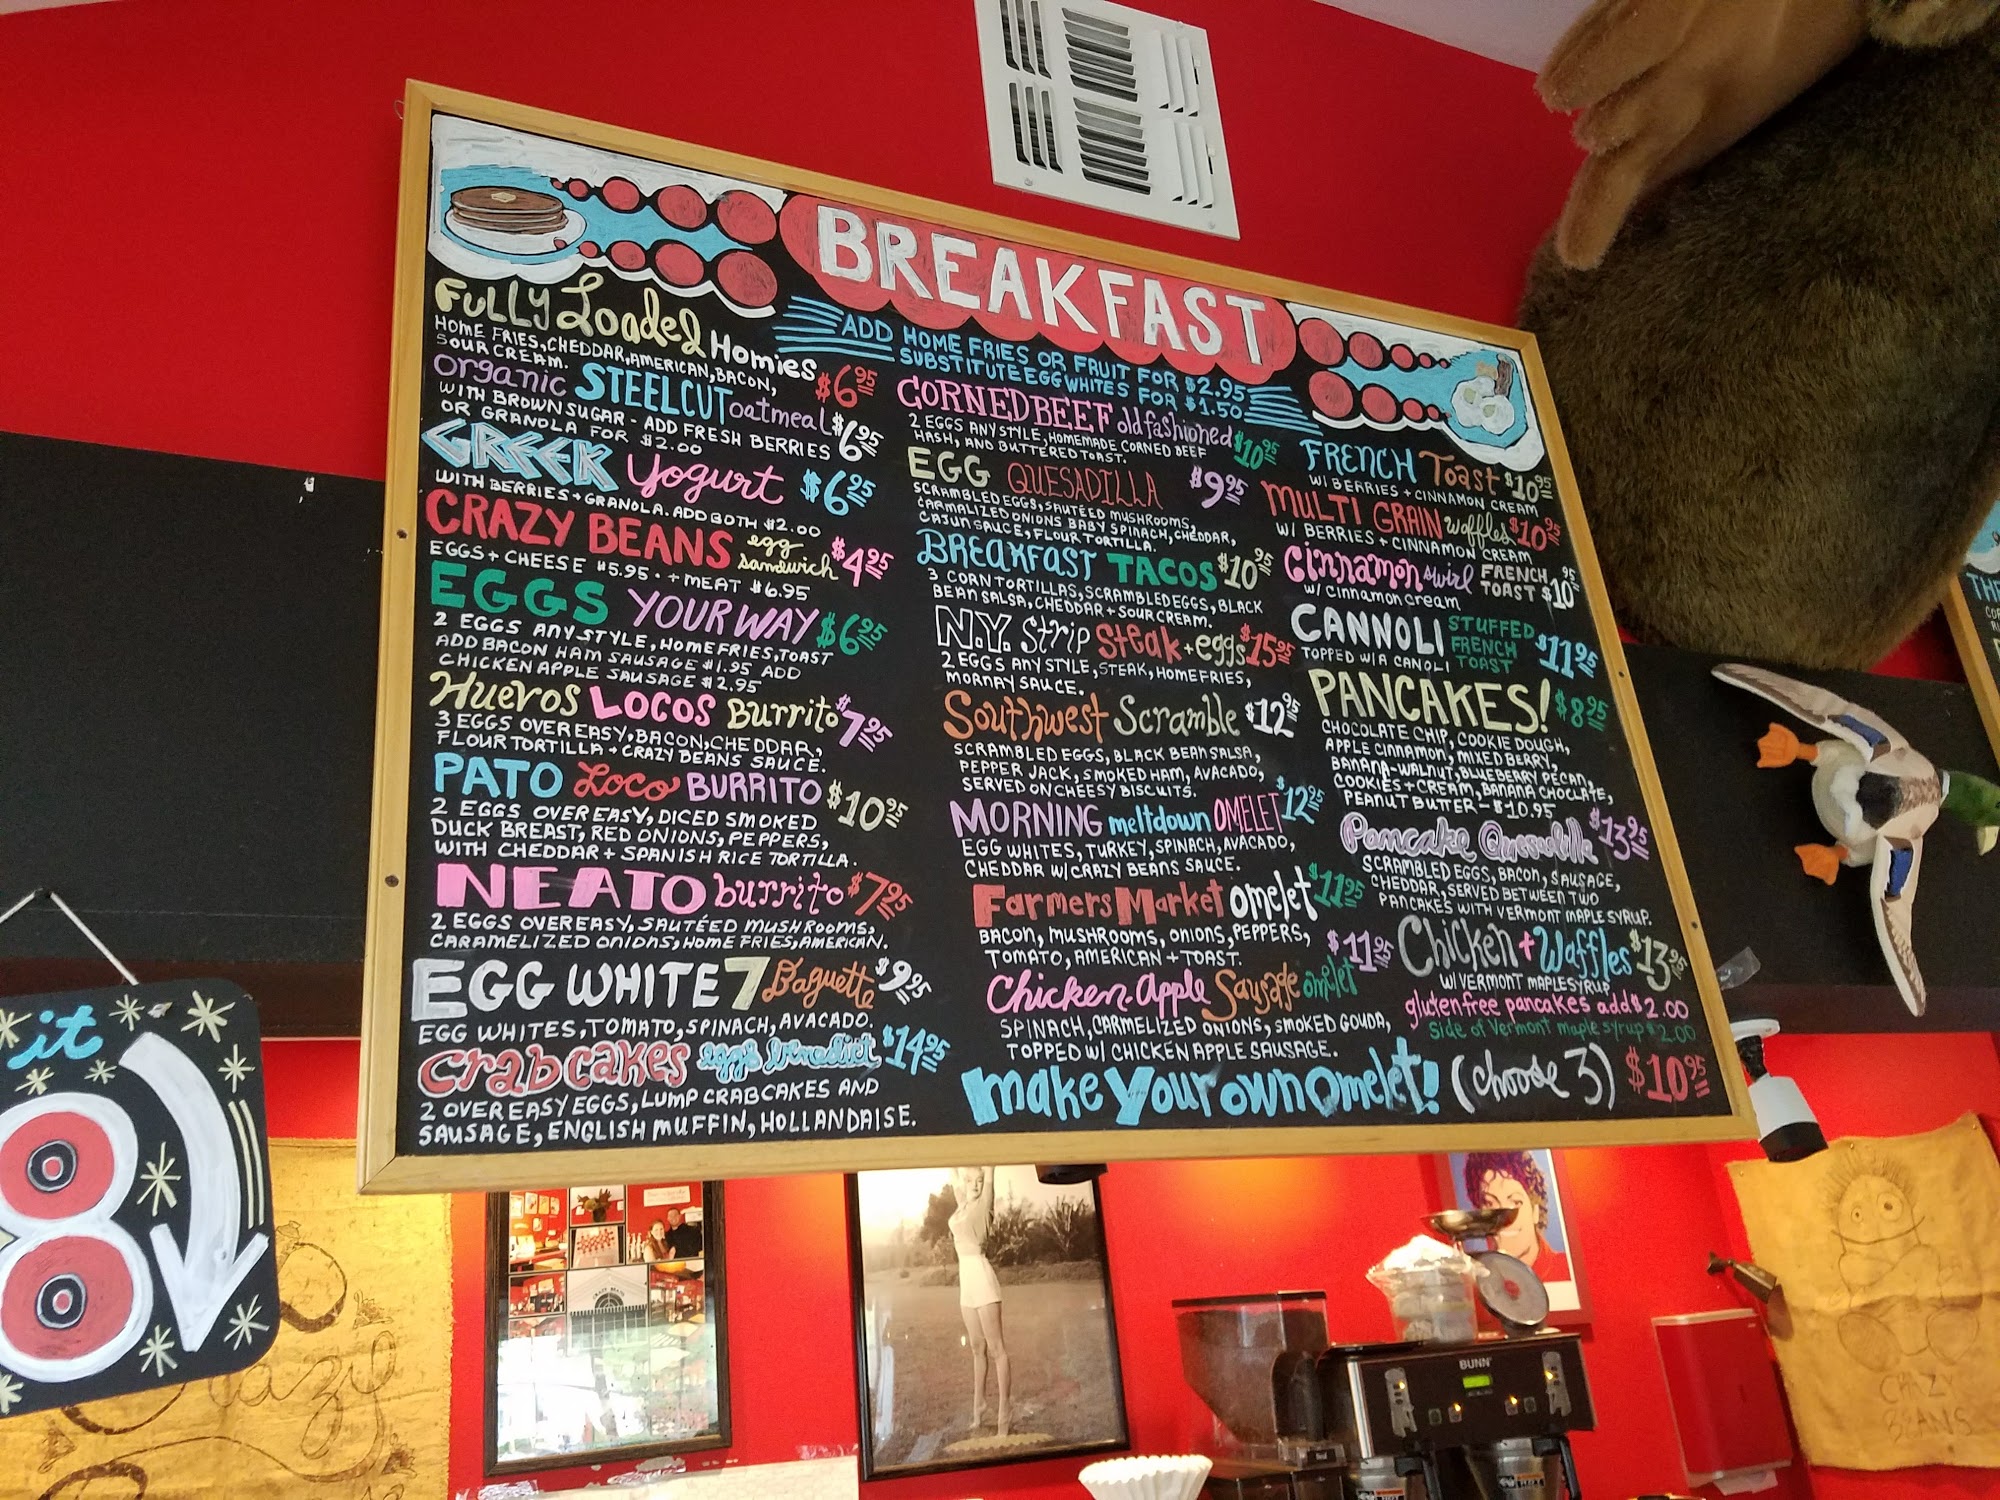 BREAKFAST
ADD HOME FRIES OR FRUIT FOR $2.95
SUBSTITUTE EGG WHITES FOR $1.50
FULLY Loaded Homies $6.95
HOME FRIES, CHEDDAR, AMERICAN, BACON,
SOUR CREAM.
Organic STEELCUT oatmeal $6.95
WITH BROWN SUGAR - ADD FRESH BERRIES
OR GRANOLA FOR $2.00
GREEK Yogurt $6.95
WITH BERRIES + GRANOLA. ADD BOTH $2.00
CRAZY BEANS egg sandwich $4.95
EGGS + CHEESE $5.95 · + MEAT $6.95
EGGS YOUR WAY $6.95
2 EGGS ANY STYLE, HOME FRIES, TOAST
ADD BACON HAM SAUSAGE $1.95 ADD
CHICKEN APPLE SAUSAGE $2.95
Huevos LOCOS Burrito $7.95
3 EGGS OVEREASY, BACON, CHEDDAR,
FLOUR TORTILLA + CRAZY BEANS SAUCE.
PATO Loco BURRITO $10.95
2 EGGS OVEREASY, DICED SMOKED
DUCK BREAST, RED ONIONS, PEPPERS,
WITH CHEDDAR + SPANISH RICE TORTILLA.
NEATO burrito $7.95
2 EGGS OVEREASY, SAUTÉED MUSHROOMS,
CARAMELIZED ONIONS, HOME FRIES, AMERICAN.
EGG WHITE 7 Baguette $9.95
EGG WHITES, TOMATO, SPINACH, AVACADO.
Crab cakes eggs benedict $14.95
2 OVER EASY EGGS, LUMP CRABCAKES AND
SAUSAGE, ENGLISH MUFFIN, HOLLANDAISE.
CORNED BEEF old fashioned $10.95
2 EGGS ANY STYLE, HOMEMADE CORNED BEEF
HASH, AND BUTTERED TOAST.
EGG QUESADILLA $9.95
SCRAMBLED EGGS, SAUTÉED MUSHROOMS,
CARMALIZED ONIONS BABY SPINACH, CHEDDAR,
CAJUN SAUCE, FLOUR TORTILLA.
BREAKFAST TACOS $10.95
3 CORN TORTILLAS, SCRAMBLED EGGS, BLACK
BEAN SALSA, CHEDDAR + SOUR CREAM.
N.Y. Strip Steak + eggs $15.95
2 EGGS ANY STYLE, STEAK, HOME FRIES,
MORNAY SAUCE.
Southwest Scramble $12.95
SCRAMBLED EGGS, BLACK BEAN SALSA,
PEPPER JACK, SMOKED HAM, AVACADO,
SERVED ON CHEESY BISCUITS.
MORNING meltdown OMELET $12.95
EGG WHITES, TURKEY, SPINACH, AVACADO,
CHEDDAR W/ CRAZY BEANS SAUCE.
Farmers Market omelet $11.95
BACON, MUSHROOMS, ONIONS, PEPPERS,
TOMATO, AMERICAN + TOAST.
Chicken Apple Sausage omelet $11.95
SPINACH, CARMELIZED ONIONS, SMOKED GOUDA,
TOPPED W/ CHICKEN APPLE SAUSAGE.
make Your own Omelet! (choose 3) $10.95
FRENCH Toast $10.95
W/ BERRIES + CINNAMON CREAM
MULTI GRAIN waffles $10.95
W/ BERRIES + CINNAMON CREAM
Cinnamon swirl FRENCH TOAST $10.95
W/ Cinnamon cream
CANNOLI STUFFED FRENCH TOAST $11.95
TOPPED W/ A CANOLI
PANCAKES! $8.95
CHOCOLATE CHIP, COOKIE DOUGH,
APPLE CINNAMON, MIXED BERRY,
BANANA-WALNUT, BLUEBERRY PECAN,
COOKIES + CREAM, BANANA CHOCLATE,
PEANUT BUTTER - $10.95
Pancake Quesadilla $13.95
SCRAMBLED EGGS, BACON, SAUSAGE,
CHEDDAR, SERVED BETWEEN TWO
PANCAKES WITH VERMONT MAPLE SYRUP.
Chicken + Waffles $13.95
W/ VERMONT MAPLE SYRUP
gluten free pancakes add $2.00
side of Vermont maple syrup $2.00
it
8
Crazy
CRAZY BEANS
BUNN
CRAZY
BEANS